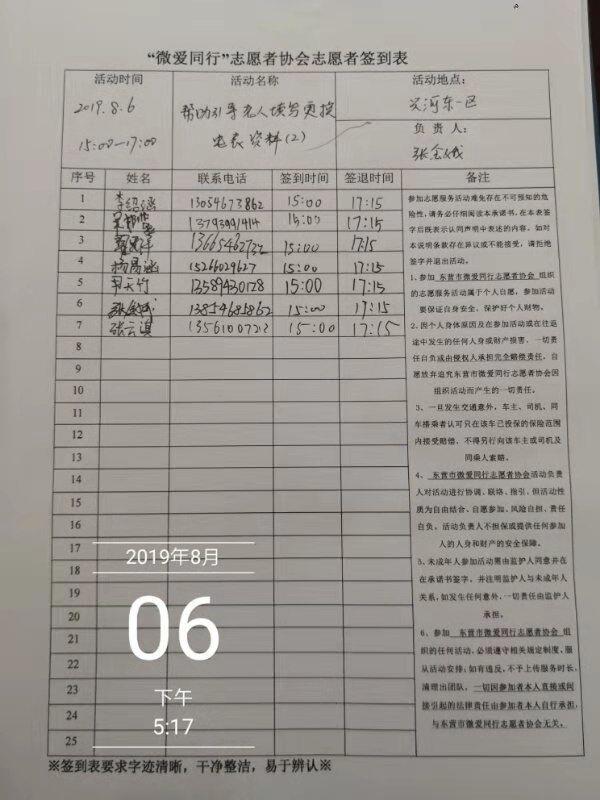 “微爱同行”志愿者协会志愿者签到表
活动时间 活动名称 活动地点:
2019.8.6 帮助引导老人填写更换 兴河东一区
15:00—17:00 电表资料(2) 负责人:
序号 姓名 联系电话 签到时间 签退时间 备注
1 李绍涵 13054673862 15:00 17:15
2 13793991414 15:00 17:15
3 13665462732 15:00 17:15
4 杨昌涵 15266029627 15:00 17:15
5 天竹 13589430128 15:00 17:15
6 13854685862 15:00 17:15
7 张云淇 13561007212 15:00 17:15
8
9
10
11
12
13
14
15
16
17
18
19
20
21
22
23
24
25
参加志愿服务活动难免存在不可预知的危
险性,请务必仔细阅读本承诺书,在本表签
字后既表示认同声明中表述的内容。如对
本说明条款存在异议或不能接受,请拒绝
签字并退出活动。
1、参加 东营市微爱同行志愿者协会 组织
的志愿服务活动属于个人自愿,参加活动
要保证自身安全、保护好个人财物。
2、因个人身体原因及在参加活动或在往返
途中发生的任何人身或财产损害,一切责
任自负或由侵权人承担完全赔偿责任,自
愿放弃追究东营市微爱同行志愿者协会因
组织活动而产生的一切责任。
3、一旦发生交通意外,车主、司机、同
车搭乘者认可只在该车已投保的保险范围
内接受赔偿,不得另行向该车主或司机及
同乘人索赔。
4、东营市微爱同行志愿者协会活动负责
人对活动进行协调、联络、指引,但活动性
质为自由结合、自愿参加、风险自担、责任
自负,活动负责人不担保或提供任何参加
人的人身和财产的安全保障。
5、未成年人参加活动需由监护人同意并在
在承诺书签字,并注明监护人与未成年人
关系,如发生任何意外,一切责任由监护人
承担。
6、参加 东营市微爱同行志愿者协会 组
织的任何活动,必须遵守相关规定制度,服
从活动安排;如有违反,不予上传服务时长,
清理出团队,一切因参加者本人直接或间
接引起的法律责任由参加者本人自行承担,
与东营市微爱同行志愿者协会无关。
2019年8月
06
下午
5:17
※签到表要求字迹清晰,干净整洁,易于辨认※